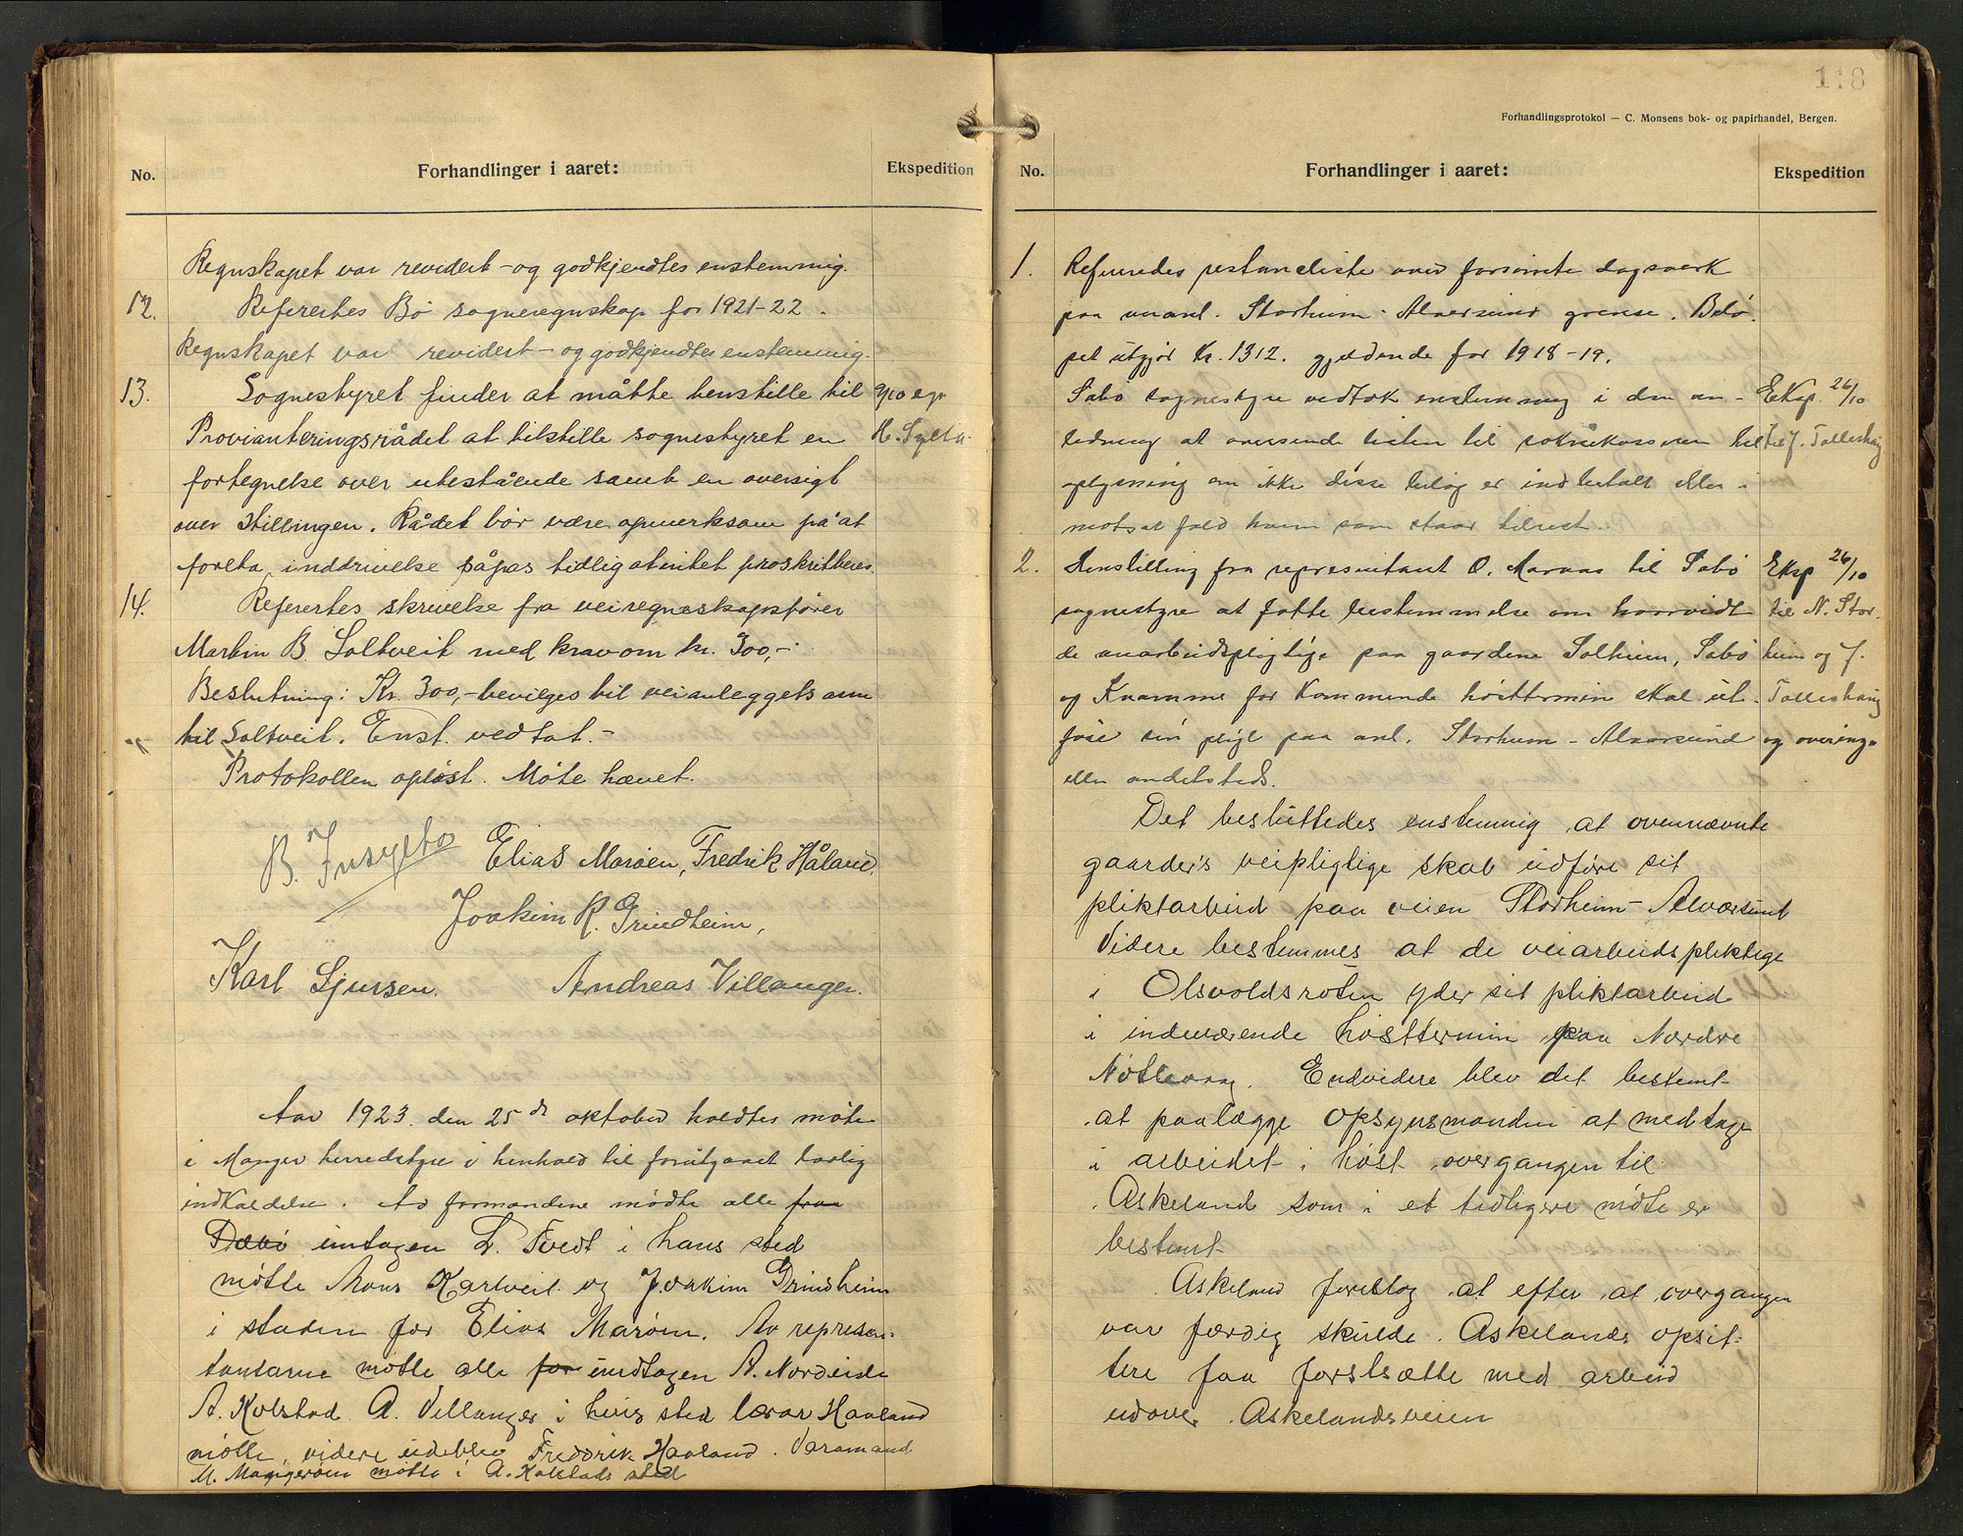 No.
Forhandlinger i aaret:
Ekspedition
Regnskapet var revidert - og godkjendtes enstemmig.
12. Referertes Bø sogneregnskap for 1921-22.
Regnskapet var revidert - og godkjendtes enstemmig.
13. Sognestyret finder at måtte henstille til
Provianteringsrådet at tilstille sognestyret en
fortegnelse over utestående samt en oversigt
over stillingen. Rådet bör være opmerksom på at
foreta inddrivelse såpas tidlig at intet
14. Referertes skrivelse fra veiregnskapsfører
Martin B. Soltveit med krav om kr. 300,-
Beslutning: Kr. 300,- bevilges til veianleggets arm
til Soltveit. Enst. vedtat.-
Protokollen opløst. Møte hævet.
B. Insylbo Elias Marøen, Fredrik Håland.
Joakim R. Grindheim,
Karl Sjursen. Andreas Villanger.
Aar 1923. den 25de oktober holdtes møte
i Manger herredstyre i henhold til forutgaaet lovlig
indkaldelse. Av formændene mødte alle fraa
Dæbø undtagen L. Tvedt i hans sted
møtte Måns Kartveit og Joakim Grindheim
i staden for Elias Marøen. Av represen-
tantarne møtte alle for undtagen A. Nordeide
A. Kolstad A. Villanger i hvis sted lærar Haaland
møtte, videre udeblev Fredrik Haaland. Varamand
M. Mangerøen møtte i A. Kolstads sted
118
Forhandlingsprotokol — C. Monsens bok- og papirhandel, Bergen.
No.
Forhandlinger i aaret:
Ekspedition
1. Refereredes restanceliste over forsømte dagsverk
paa veianl. Storheim - Alversund grense. Belø-
pet utgjør Kr. 1312. gjældende for 1918-19.
Sæbø sognestyre vedtok enstemmig i den an- Eksp. 26/10
ledning at oversende listen til sognekasseren til J. Tolleshaug
oplysning om ikke disse beløp er indbetalt eller i
motsat fald hvem som staar tilrest.
2. Henstilling fra representant O. Maraas til Sæbø Eksp 26/10
sognestyre at fatte bestemmelse om hvorvidt til N. Stor-
de veiarbeidspligtige paa gaardene Solheim, Sæbø heim og J.
og Kvamme for kommende høsttermin skal ut- Tolleshaug
føre sin pligt paa anl. Storheim - Alversund
eller andetsteds.
Det besluttedes enstemmig at ovennævnte
gaarders veipligtige skal udføre sit
pliktarbeid paa veien Storheim - Alversund
Videre bestemmes at de veiarbeidspliktige
i Olsvoldsroten yder sit pliktarbeid
i indeværende høsttermin paa Nordre
Nøtlevaag. Endvidere blev det bestemt
at paalægge opsynsmanden at medtage
i arbeidet i høst overgangen til
Askeland som i et tidligere møte er
bestemt
Askeland foreslog at efter at overgangen
var færdig skulde Askelands opsit-
tere faa forstsætte med arbeid
udover Askelandsveien